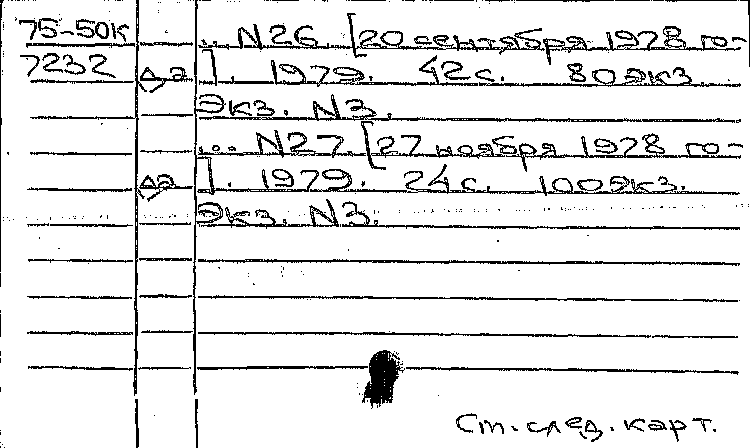 75-50к
... N26. [20 сентября 1978 го-
7232 да]. 1979. 42с. 80экз.
Экз. N3.
... N27. [27 ноября 1978 го-
да]. 1979. 24с. 100экз.
Экз. N3.
См. след. карт.